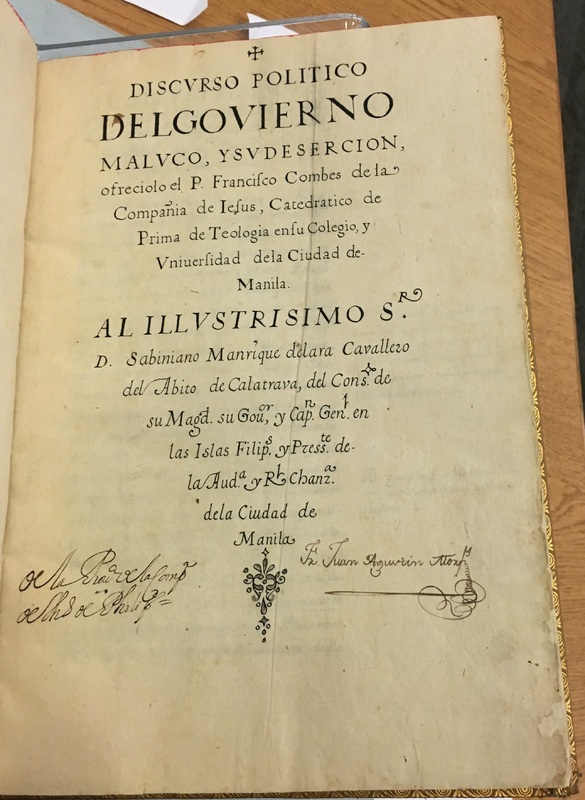 DISCVRSO POLITICO
DELGOVIERNO
MALVCO, YSVDESERCION,
ofreciolo el P. Francisco Combes de la
Compañia de Iesus, Catedratico de
Prima de Teologia ensu Colegio, y
Vniuersidad dela Ciudad de-
Manila.
AL ILLVSTRISIMO S.R
D. Sabiniano Manrique delara Cavallero
del Abito de Calatrava, del Cons. de
su Magd. su Gouor, y Capn. Genl. en
las Islas Filips. y Presste. de-
la Auda. y Rl. Chanza.
dela Ciudad de
Manila
de la Proa. de la Comp
de Jhs de Philips
Fr. Juan Agustin